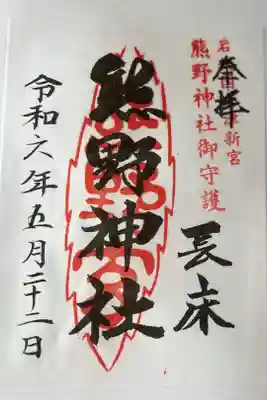 奉拝
新宮
熊野神社御守護
長床
熊野神社
令和六年五月二十二日